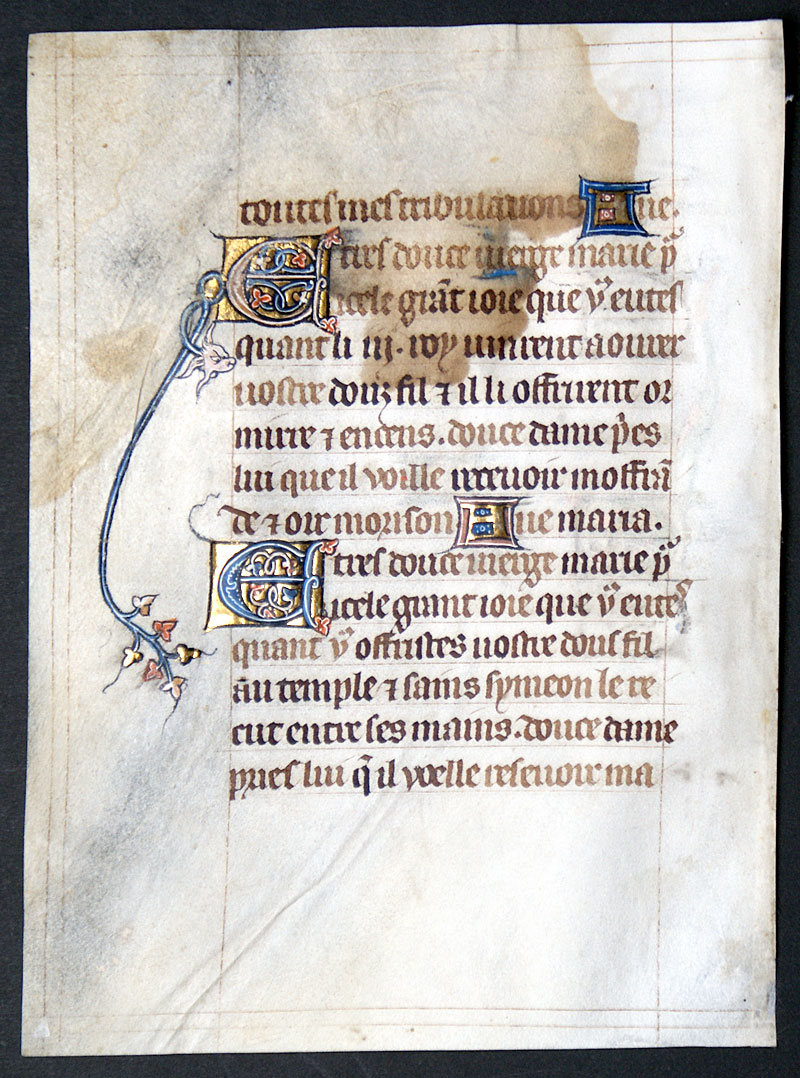 toutes mes tribulations Aue.
E tres douce uierge marie pͬ
icele grãt ioie que vͬ eutes
quant li iij. roy uinrent aourer
uostre douz fil ⁊ il li offrirent or
mirre ⁊ encens. douce dame p̃es
lui que il voille receuoir moffrã
de ⁊ oir morison Aue maria.
E tres douce uierge marie pͬ
icele grant ioie que vͬ eutes
quant vͬ offristes uostre dous fil
au temple ⁊ sains symeon le re
cut entre ses mains. douce dame
pries lui q̃ il voelle reseuoir ma